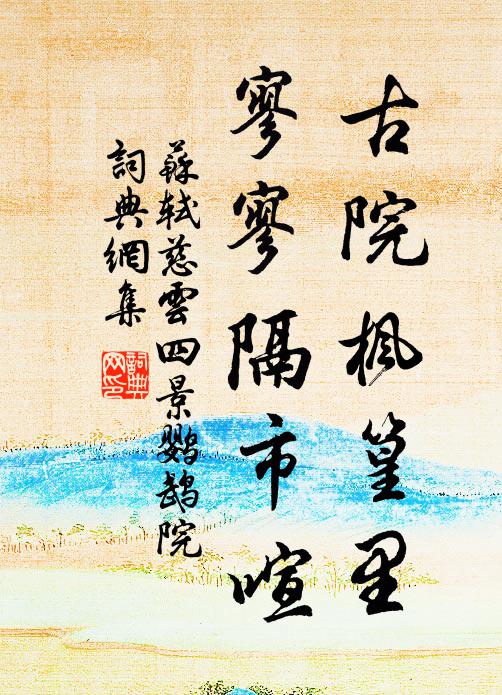 古院枫篁里
寥寥隔市喧
蘇軾慈雲四景鹦鹉院
詞典網集
詞典網印